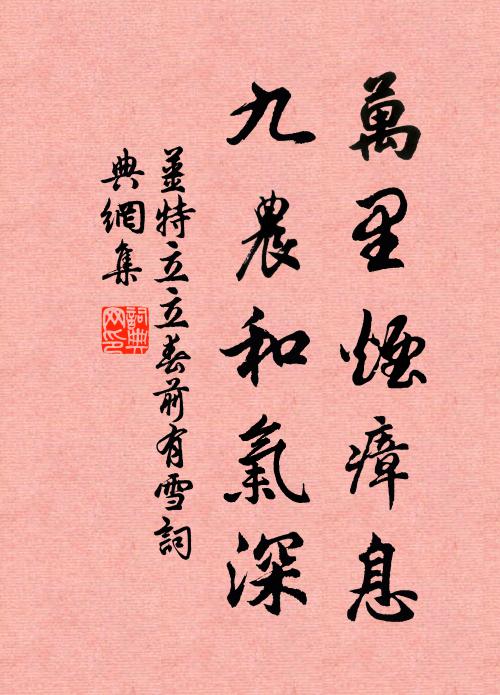 萬里煙瘴息
九農和氣深
姜特立立春前有雪詞
典網集
詞典網印